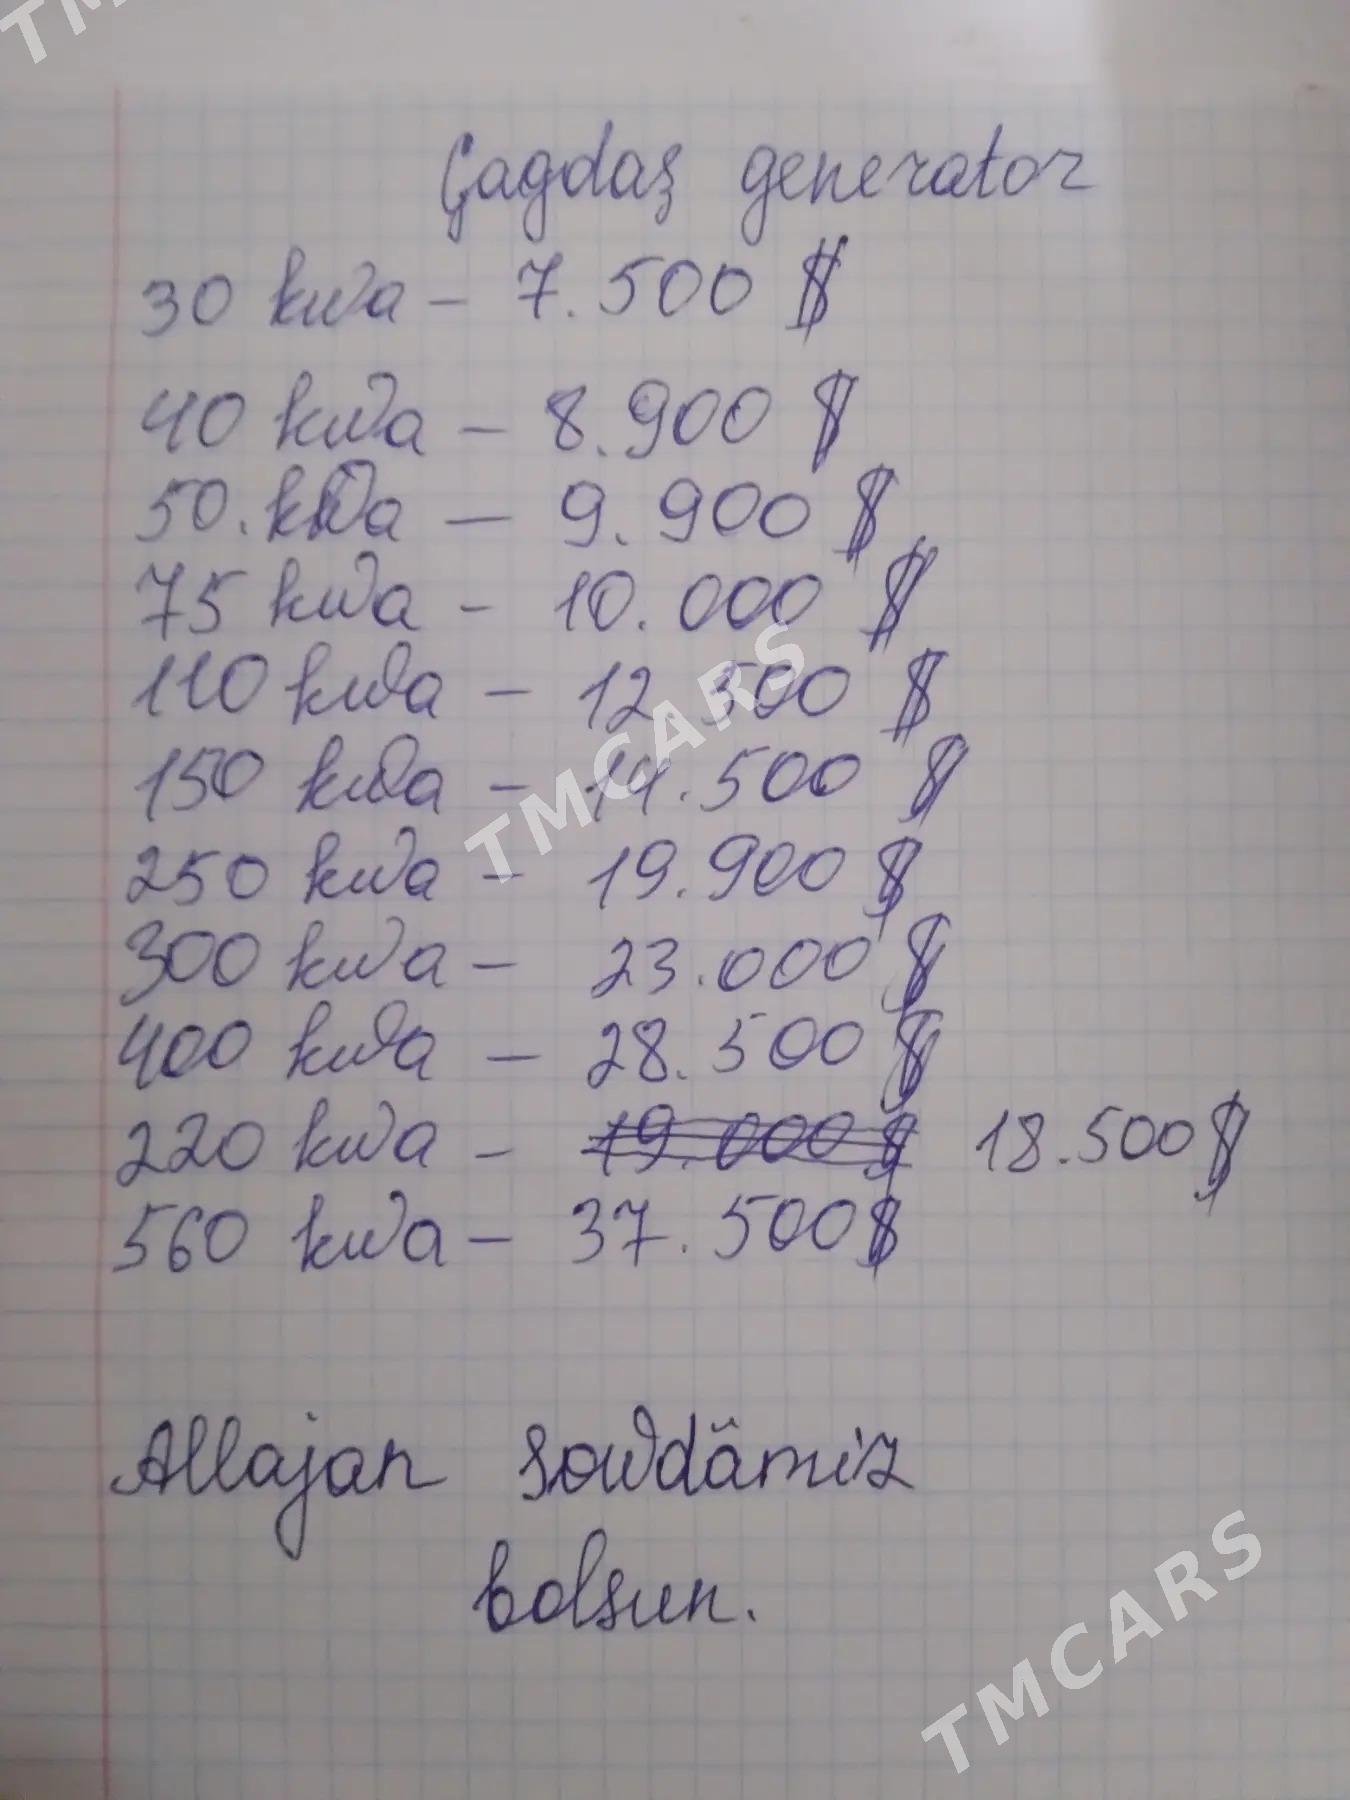 TM
Çagdaş generator
30 kwa - 7.500 $
40 kwa - 8.900 $
50. kwa - 9.900 $
75 kwa - 10.000 $
110 kwa - 12.500 $
150 kwa - 14.500 $
250 kwa - 19.900 $
300 kwa - 23.000 $
400 kwa - 28.500 $
220 kwa - 19.000 $ 18.500 $
560 kwa - 37.500 $
TMCARS
Allajan sowdâmiz
bolsun.
TMCARS